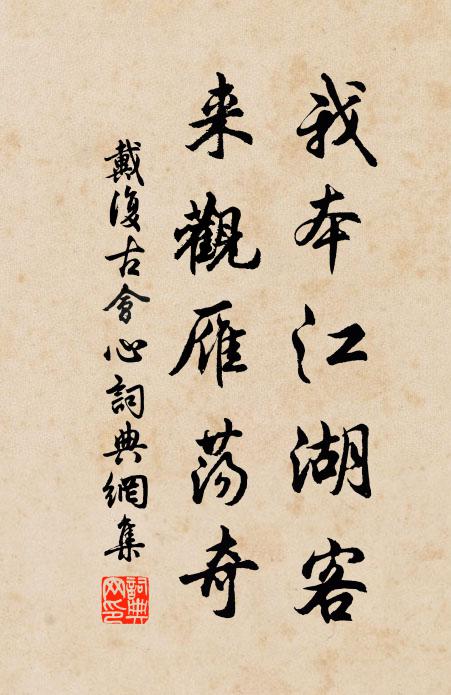 我本江湖客
来觀雁荡奇
戴復古會心詞典網集
詞典網印